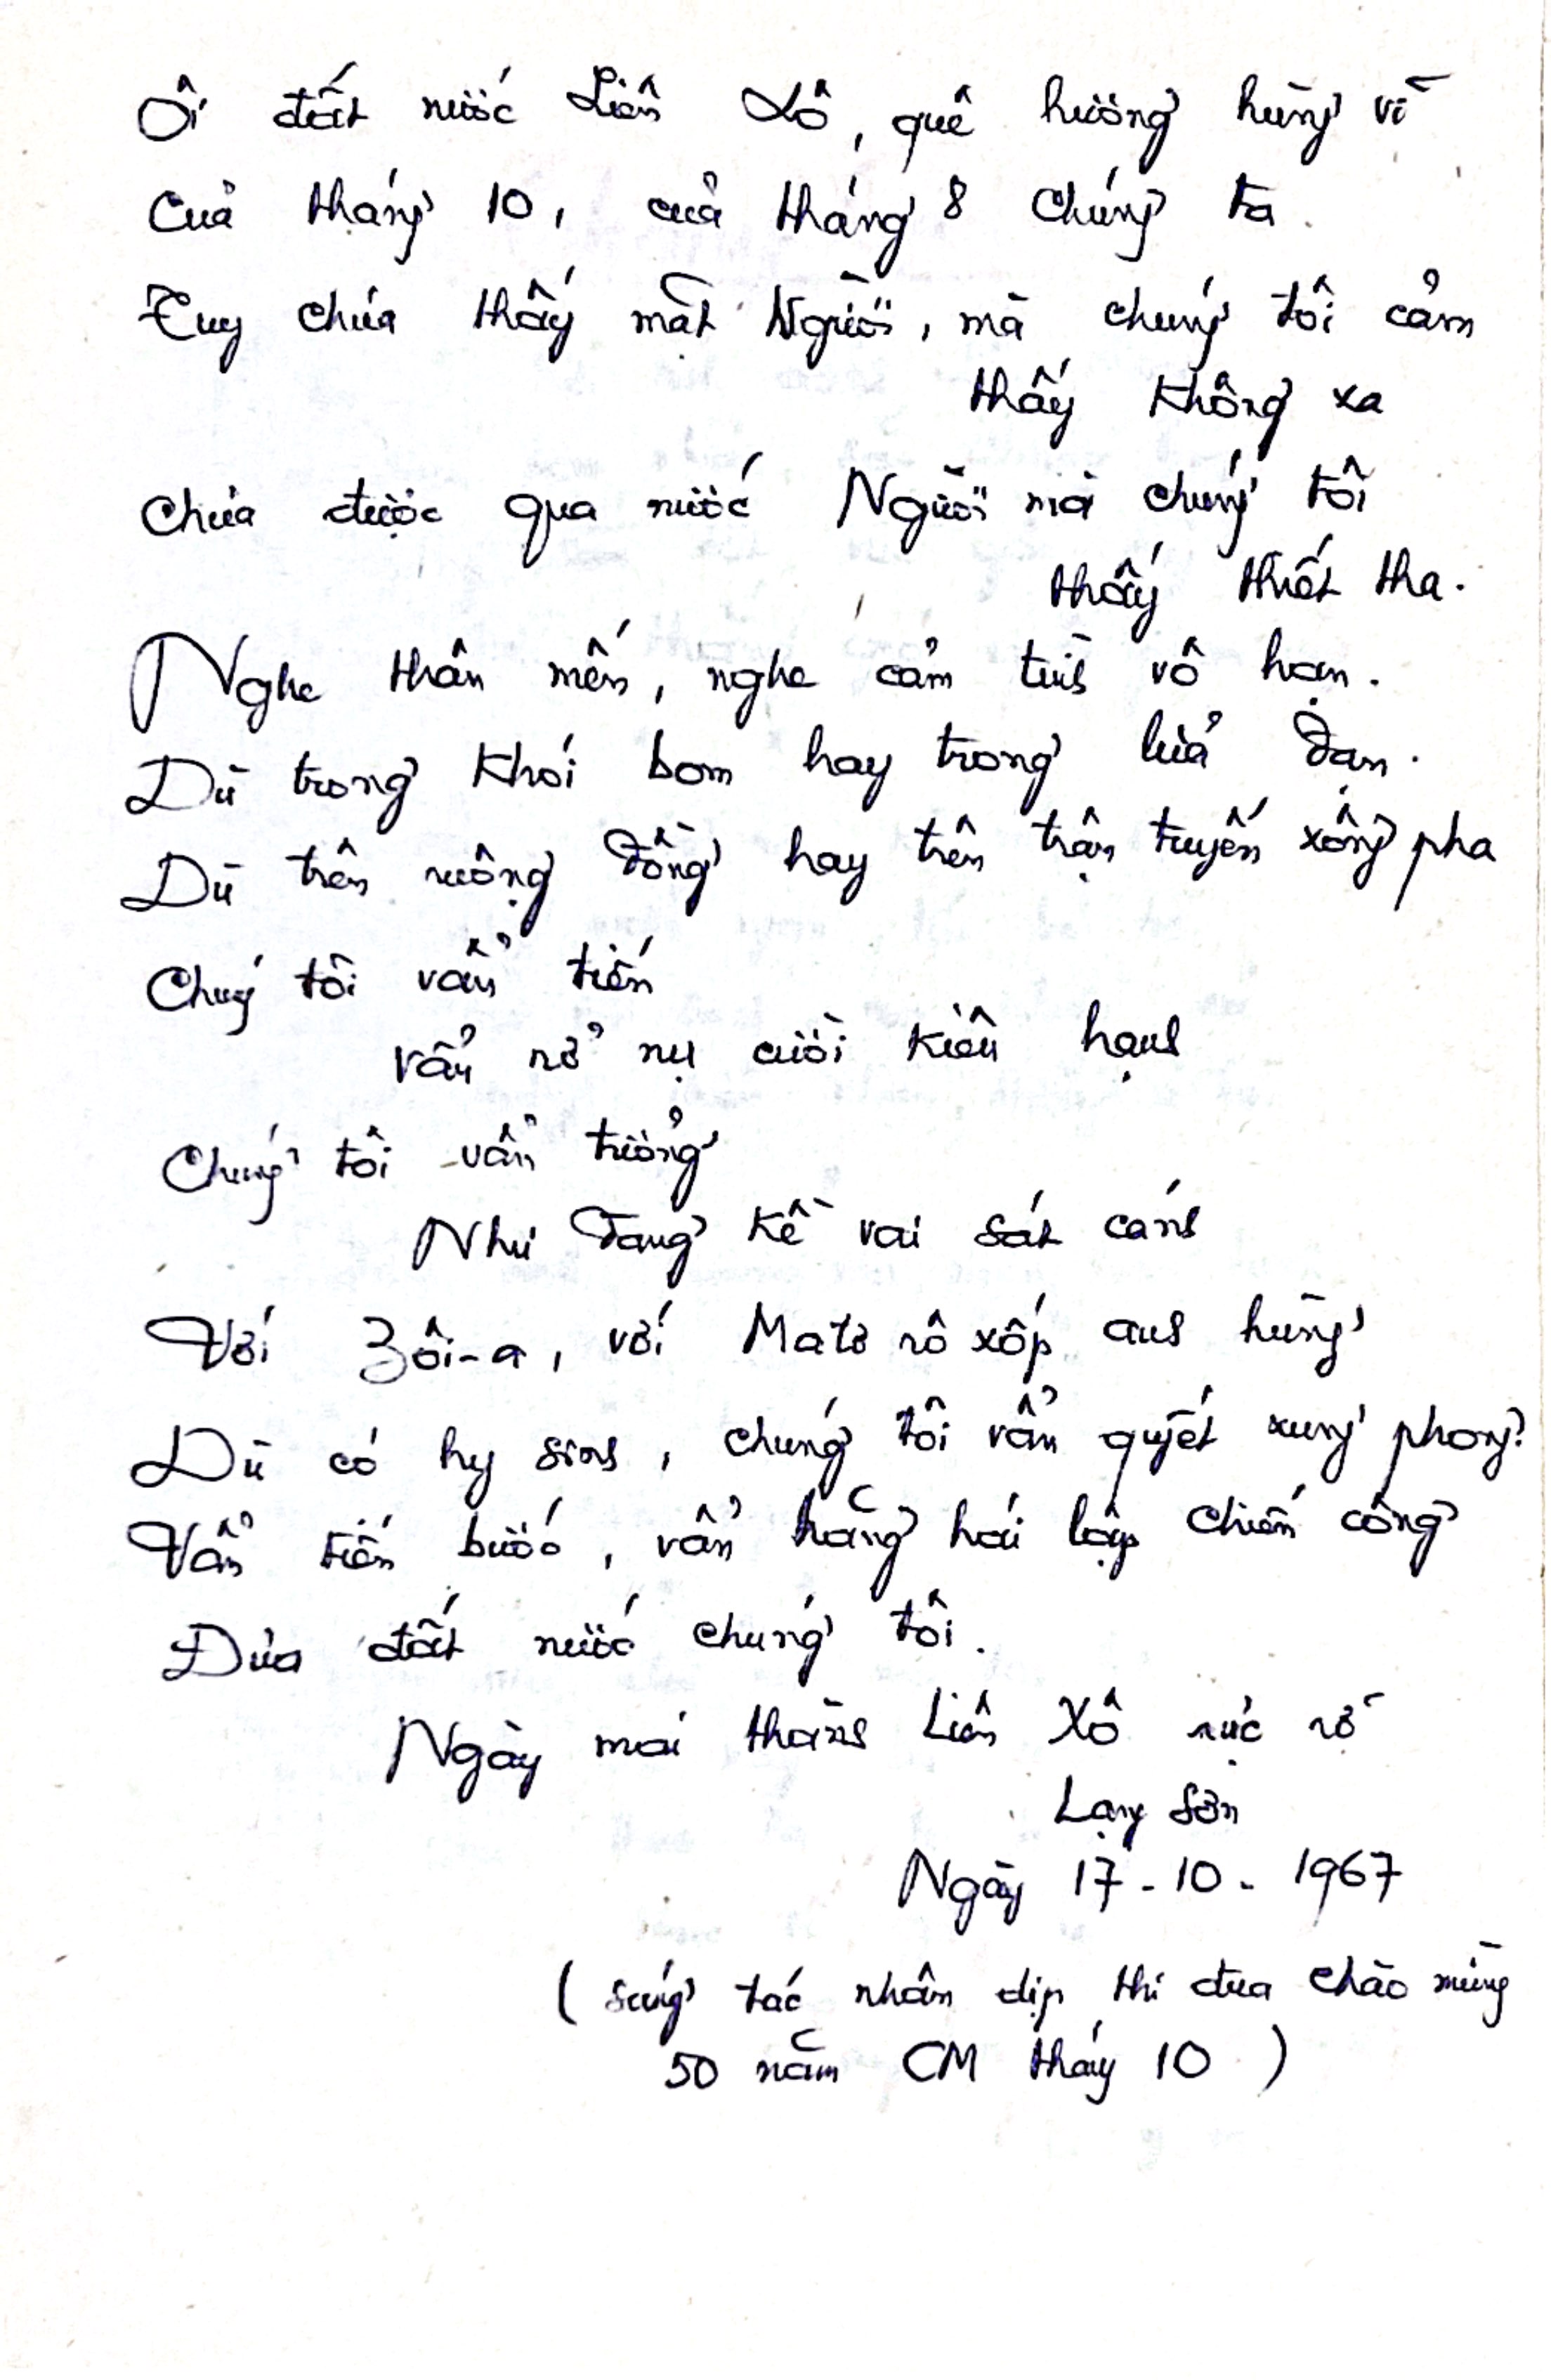 Ôi đất nước Liên Xô, quê hương hùng vĩ
Của tháng 10, của tháng 8 chúng ta.
Tuy chưa thấy mặt Người, mà chúng tôi cảm
thấy không xa
Chưa được qua nước Người mà chúng tôi
thấy thiết tha.
Nghe thân mến, nghe cảm tình vô hạn.
Dù trong khói bom hay trong lửa đạn.
Dù trên ruộng đồng hay trên trận tuyến xông pha
Chúng tôi vẩn tiến
Vẩn nở nụ cười kiêu hạnh
Chúng tôi vẩn tưởng
Như đang kề vai sát cánh
Với Zôi-a, với Matơrôxốp anh hùng
Dù có hy sinh, chúng tôi vẩn quyết xung phong?
Vẩn tiến bước, vẩn hăng hái lập chiến công
Đưa đất nước chúng tôi.
Ngày mai thành Liên Xô rực rỡ
Lạng Sơn
Ngày 17-10-1967
(sáng tác nhân dịp thi đua chào mừng
50 năm CM tháng 10)